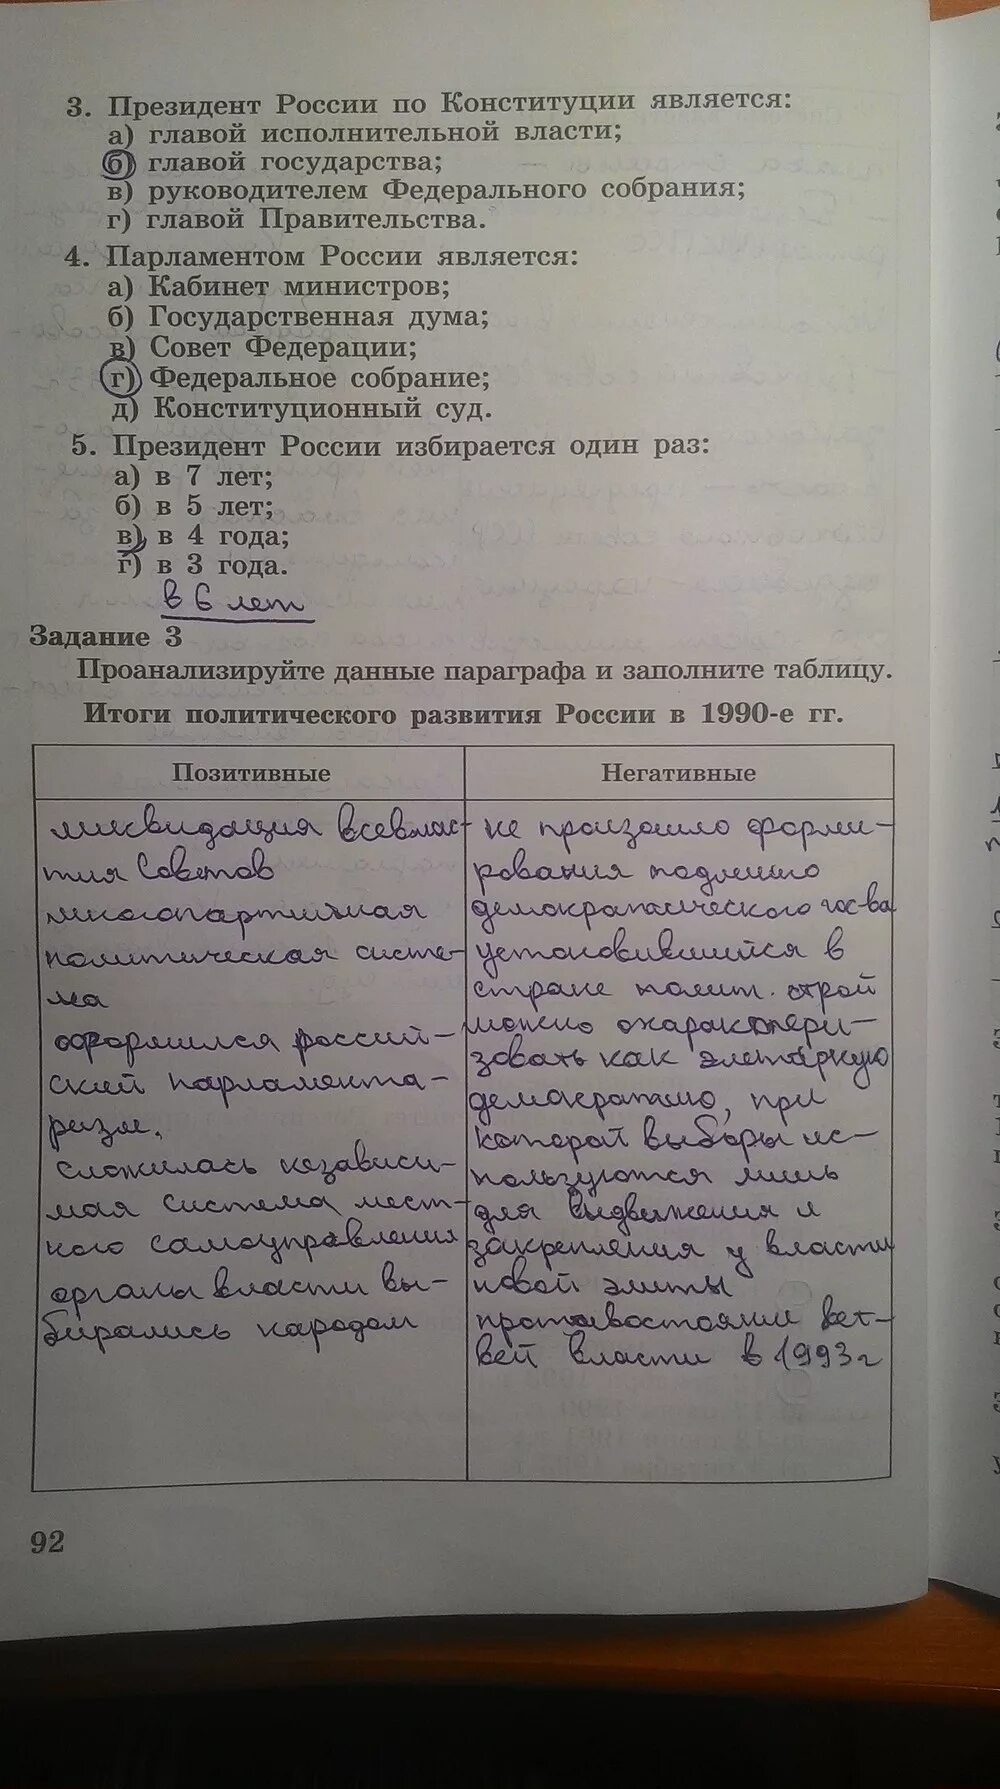 3. Президент России по Конституции является:
а) главой исполнительной власти;
б) главой государства;
в) руководителем Федерального собрания;
г) главой Правительства.
4. Парламентом России является:
а) Кабинет министров;
б) Государственная дума;
в) Совет Федерации;
г) Федеральное собрание;
д) Конституционный суд.
5. Президент России избирается один раз:
а) в 7 лет;
б) в 5 лет;
в) в 4 года;
г) в 3 года.
в 6 лет
Задание 3
Проанализируйте данные параграфа и заполните таблицу.
Итоги политического развития России в 1990-е гг.
Позитивные
ликвидация всевлас-
тия Советов
многопартийная
политическая систе-
ма
оформился россий-
ский парламента-
ризм.
сложилась независи-
мая система мест-
ного самоуправления
органы власти вы-
бирались народом
Негативные
не произошло форми-
рования подлинно
демократического гос-ва
установившийся в
стране полит. строй
можно охарактери-
зовать как элитарную
демократию, при
которой выборы ис-
пользуются лишь
для выдвижения и
закрепления у власти
новой элиты
противостоянии вет-
вей власти в 1993г
92